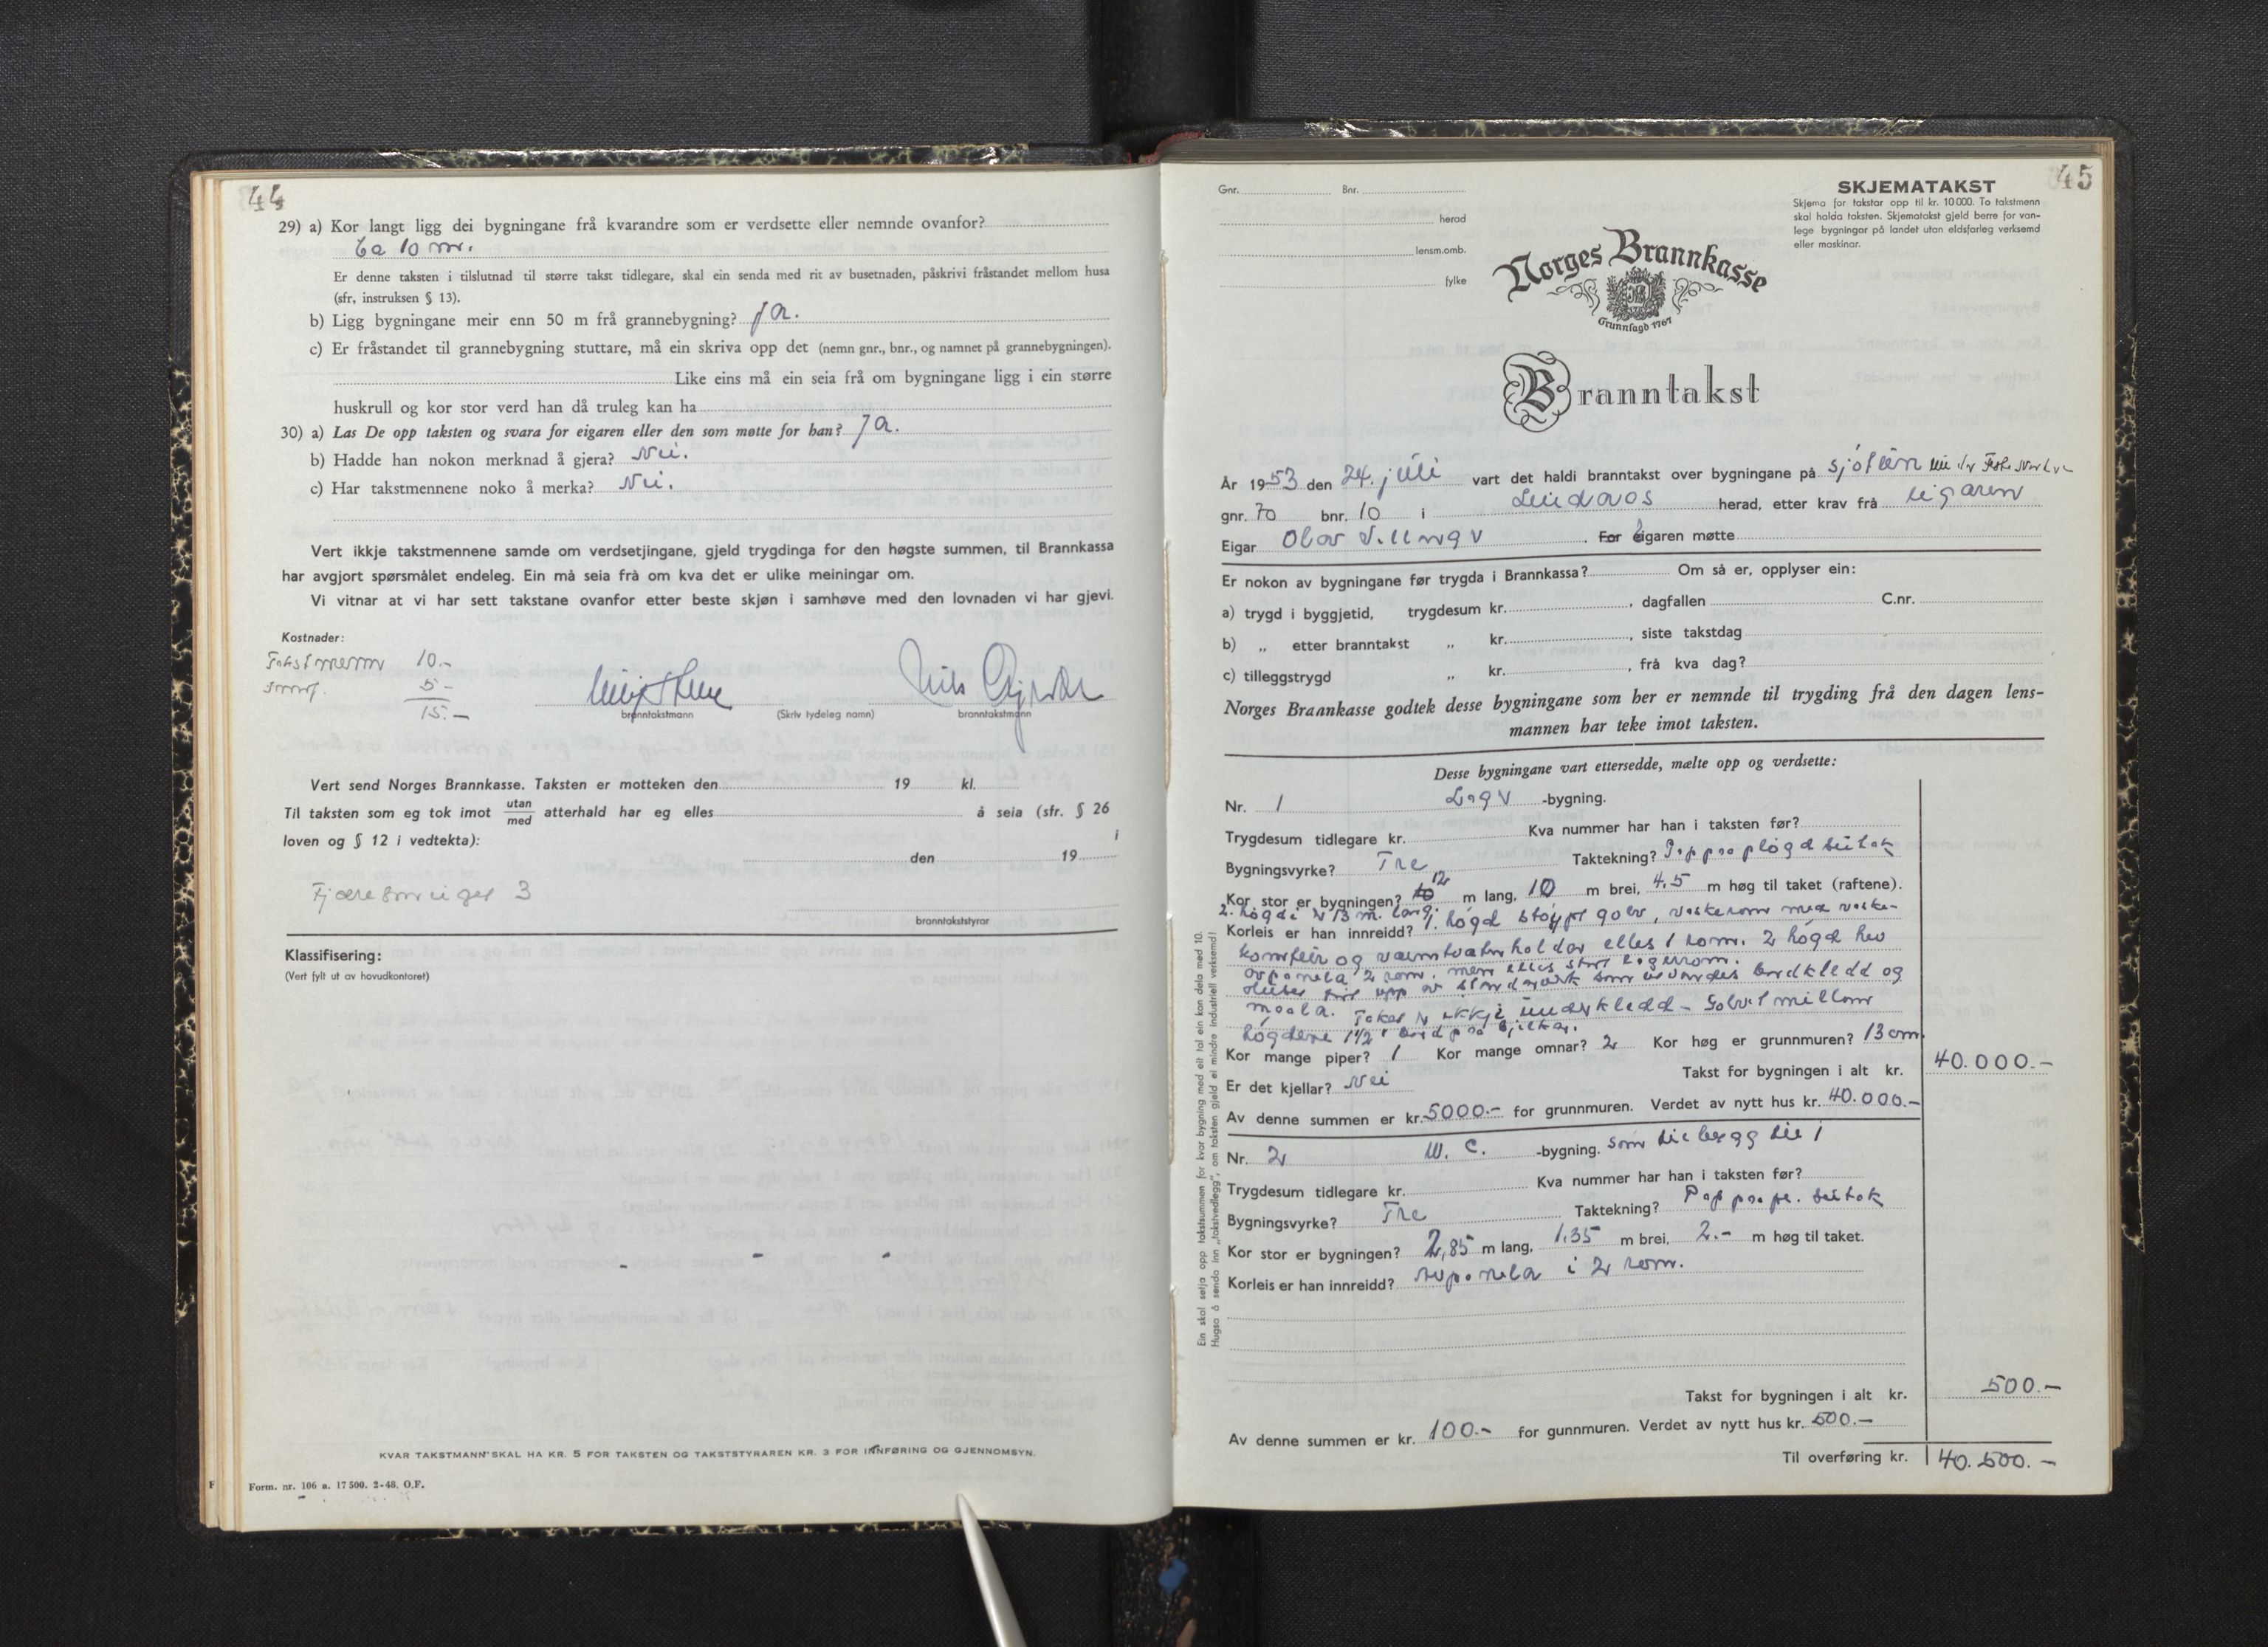 44
29) a) Kor langt ligg dei bygningane frå kvarandre som er verdsette eller nemnde ovanfor?
Ca 10 m.
Er denne taksten i tilslutnad til større takst tidlegare, skal ein senda med rit av busetnaden, påskrivi fråstandet mellom husa
(sfr, instruksen § 13).
b) Ligg bygningane meir enn 50 m frå grannebygning? Ja.
c) Er fråstandet til grannebygning stuttare, må ein skriva opp det (nemn gnr., bnr., og namnet på grannebygningen).
Like eins må ein seia frå om bygningane ligg i ein større
huskrull og kor stor verd han då truleg kan ha
30) a) Las De opp taksten og svara for eigaren eller den som møtte for han? Ja.
b) Hadde han nokon merknad å gjera? Nei.
c) Har takstmennene noko å merka? Nei.
Vert ikkje takstmennene samde om verdsetjingane, gjeld trygdinga for den høgste summen, til Brannkassa
har avgjort spørsmålet endeleg. Ein må seia frå om kva det er ulike meiningar om.
Vi vitnar at vi har sett takstane ovanfor etter beste skjøn i samhøve med den lovnaden vi har gjevi.
Kostnader:
Takstmenn 10.-
Innf. 5-
15.-
Nils
branntakstmann (Skriv tydeleg namn) branntakstmann
Vert send Norges Brannkasse. Taksten er motteken den 19 kl.
Til taksten som eg tok imot utan/med atterhald har eg elles å seia (sfr. § 26
loven og § 12 i vedtekta): i
den 19
3
branntakststyrar
Klassifisering:
(Vert fylt ut av hovudkontoret)
KVAR TAKSTMANN SKAL HA KR. 5 FOR TAKSTEN OG TAKSTSTYRAREN KR. 3 FOR INNFØRING OG GJENNOMSYN.
Form. nr. 106 a. 17 500. 2-48. O.F.
45
Gnr. Bnr.
herad
lensm.omb.
fylke
SKJEMATAKST
Skjema for takstar opp til kr. 10 000. To takstmenn
skal halda taksten. Skjematakst gjeld berre for van-
lege bygningar på landet utan eldsfarleg verksemd
eller maskinar.
Norges Brannkasse
Grunnlagd 1767
Branntakst
År 1953 den 24. juli vart det haldi branntakst over bygningane på
gnr. 70 bnr. 10 i Lindaas herad, etter krav frå eigaren
Eigar Olav . For eigaren møtte
Er nokon av bygningane før trygda i Brannkassa? Om så er, opplyser ein:
a) trygd i byggjetid, trygdesum kr. , dagfallen C.nr.
b) „ etter branntakst „ kr. , siste takstdag
c) tilleggstrygd „ kr. , frå kva dag?
Norges Braankasse godtek desse bygningane som her er nemnde til trygding frå den dagen lens-
mannen har teke imot taksten.
Desse bygningane vart ettersedde, mælte opp og verdsette:
Nr. 1 -bygning.
Trygdesum tidlegare kr. Kva nummer har han i taksten før?
Bygningsvyrke? Tre Taktekning? Papp paa pløgd sutak
Kor stor er bygningen? 12 m lang, 10 m brei, 4.5 m høg til taket (raftene).
2. høgdi er 13 m. lang.
Korleis er han innreidd? 1. høgd støypt golv, vaskerom med vaske-
komfyr og varmtvatnholdar elles 1 rom. 2 høgd hev
avpanela 2 rom. men elles stort lagerrom.
Huset sett upp av som utvendes bordkledd og
maala. Taket er ikkje underkledd - Golvet millom
høgdene 1½" bord paa bjelkar.
Kor mange piper? 1 Kor mange omnar? 2 Kor høg er grunnmuren? 13 cm.
Er det kjellar? Nei Takst for bygningen i alt kr. 40.000.-
Av denne summen er kr. 5000.- for grunnmuren. Verdet av nytt hus kr. 40.000.-
Nr. 2 W. C. -bygning. som tilbygg til 1
Trygdesum tidlegare kr. Kva nummer har han i taksten før?
Bygningsvyrke? Tre Taktekning? Papp paa pl. sutak
Kor stor er bygningen? 2,85 m lang, 1.35 m brei, 2.- m høg til taket.
Korleis er han innreidd? avpanela i 2 rom.
Takst for bygningen i alt kr. 500.-
Av denne summen er kr. 100.- for gunnmuren. Verdet av nytt hus kr. 500.-
Til overføring kr. 40.500.-
Ein skal setja opp takstsummen for kvar bygning med eit tal ein kan dela med 10.
Hugsa å senda inn „takstvedlegg", om taksten gjeld ei mindre industriell verksemd!